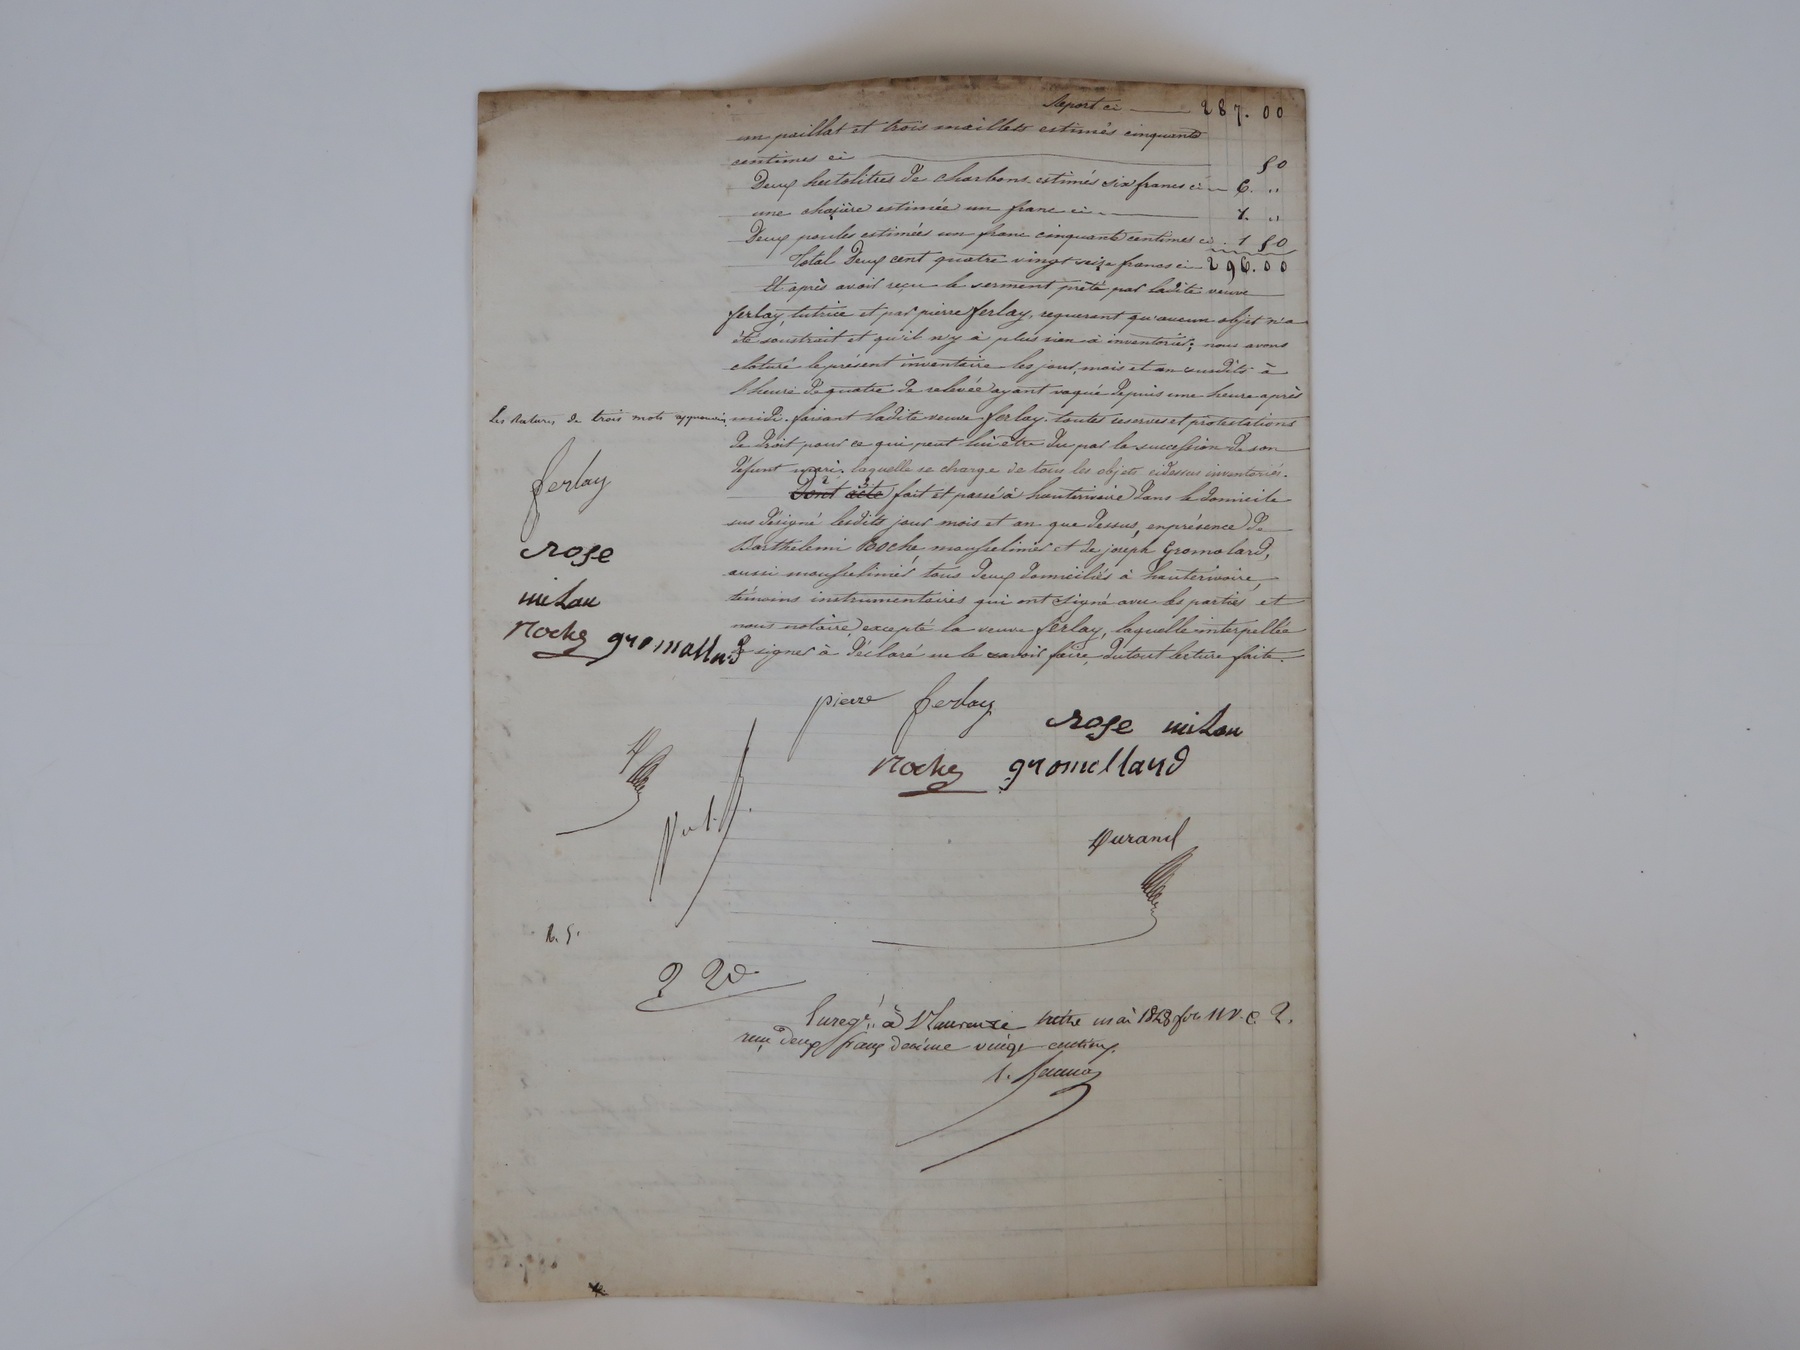 Report ci 287. 00
un paillat et trois maillets estimés cinquante
centimes ci 50
Deux hectolitres de charbons estimés six francs ci 6. "
une chasière estimée un franc ci 1. "
Deux poules estimées un franc cinquante centimes ci 1 50
Total Deux cent quatre vingt seize francs ci 296. 00
Et après avoir reçu le serment prêté par ladite veuve
ferlay, tutrice et par pierre ferlay, requerant qu'aucun objet n'a
été soustrait et qu'il n'y à plus rien à inventorier; nous avons
cloturé le présent inventaire les jour, mois et an susdits à
l'heure de quatre de relevée ayant vaqué depuis une heure après
midi. faisant ladite veuve ferlay. toutes reserves et protestations
de droit pour ce qui peut lui etre du par la succession de son
défunt mari. laquelle se charge de tous les objets cidessus inventoriés.
Dont acte fait et passé à hauterivoire dans le domicile
sus désigné lesdits jour mois et an que dessus, en présence de
Barthelemi Roche, mousselinier et de joseph Gromolard,
aussi mousselinier tous deux domiciliés à hauterivoire,
témoins instrumentaires qui ont signé avec les parties et
nous notaire, excepté la veuve ferlay, laquelle interpellée
de signer à déclaré ne le savoir faire, du tout lecture faite.
Les ratures de trois mots approuvées
ferlay
rose
milan
Roche gromollard
pierre ferlay
rose milan
Roche gromollard
Durand
Not.
R. S.
2 20
Enregé. à St Laurent le mai 1828 fo. 11 V. C. 2.
reçu deux francs decime vingt centimes.